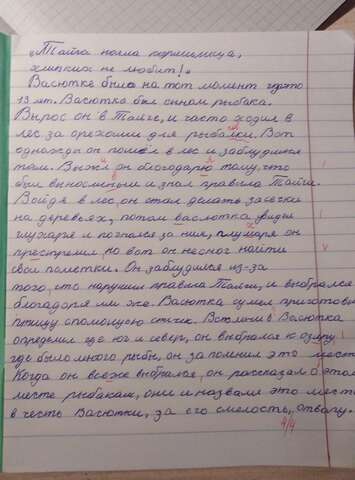 "Тайга наша кормилица,
хлипких не любит!"
Васютке было на тот момент где то
13 лет. Васютка был сыном рыбака.
Вырос он в Тайге, и часто ходил в
лес за орехами для рыбалки. Вот
однажды он пошёл в лес и заблудился
там. Выжил он благодаря тому, что
был выносменым и знал правила Тайги.
Войдя в лес, он стал делать засечки
на деревьях, потом васютка увидел
глухаря и погнался за ним, глухаря он
престрелил, но вот он несмог найти
свои пометки. Он заблудился из-за
того, что нарушил правила Тайги, и выбрался
благодаря им же. Васютка сумел приготовить
птицу спомощью спичек. Васютка
определил где юг и север, он выбрался к озеру,
где было много рыбы, он запомнил это место
Когда он всёже выбрался, он рассказал о этом
месте рыбакам, они и назвали это место
в честь Васютки, за его смелость, отвагу.
4/4